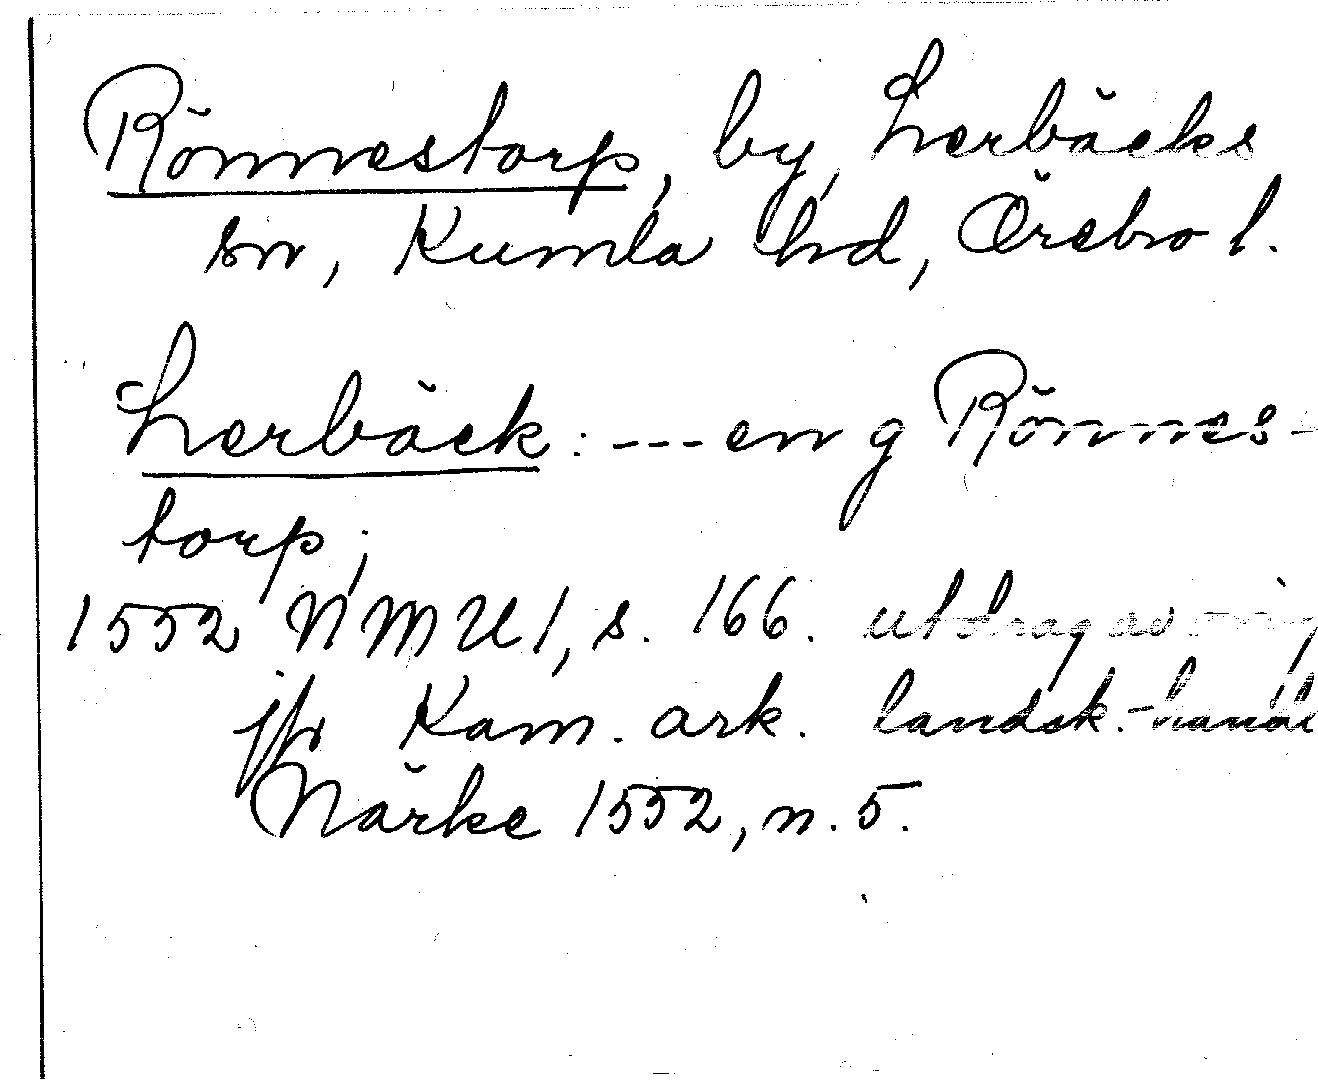 Rönnestorp, by, Lerbäcks
sn, Kumla hd, Örebro l.
Lerbäck: --- en g Rönnes-
torp;
1552 NMU 1, s. 166. utdrag av orig
jfr Kam. ark. landsk.-handl
Närke 1552, n. 5.